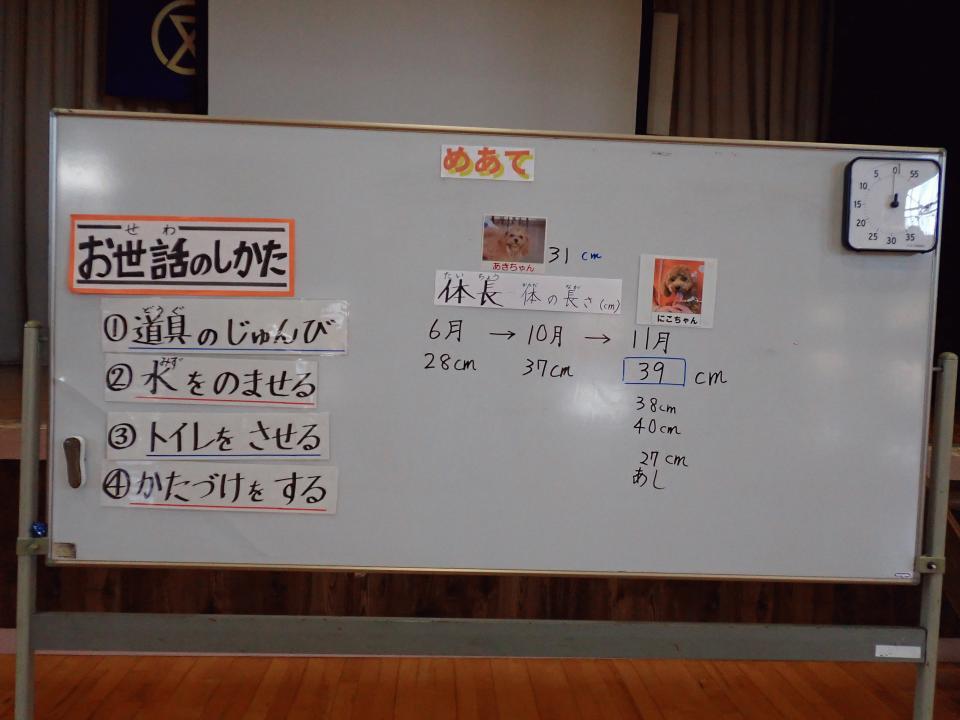 めあて
お世話のしかた
せわ
①道具のじゅんび
どうぐ
②水をのませる
みず
③トイレを させる
④かたづけを する
あきちゃん
31 cm
たいちょう からだ なが
体長 体の長さ(cm)
にこちゃん
6月 → 10月 → 11月
28cm 37cm 39 cm
38cm
40cm
27cm
あし
0 55
5
10
15
20
25 30 35